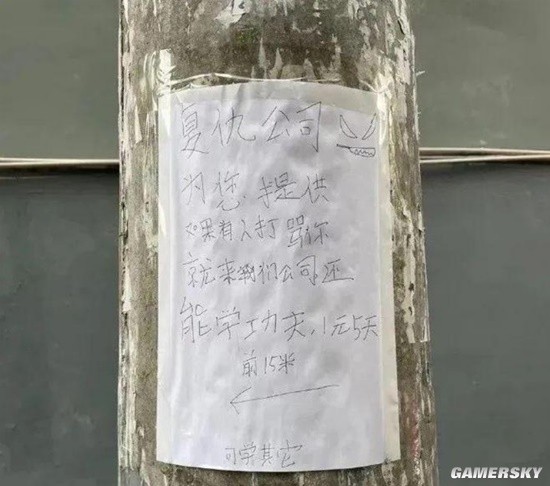 复仇公司
为您提供
如果有人打骂你
就来我们公司还
能学功夫,1元5天
前15米
可学其它
GAMERSKY